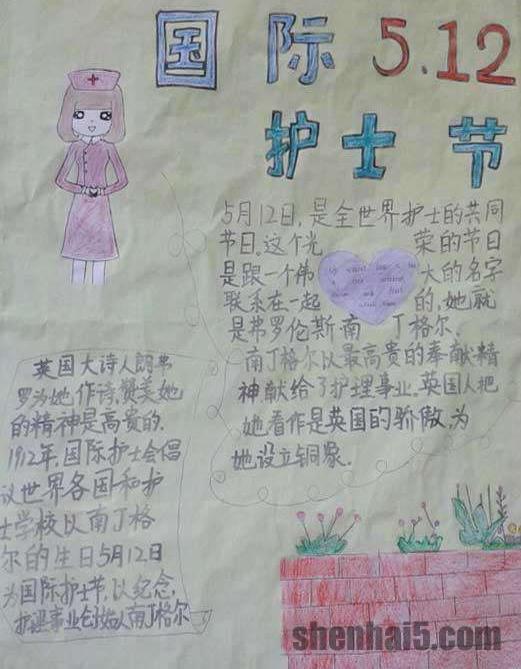 国际 5.12
护士节
5月12日,是全世界护士的共同
节日。这个光 荣的节日
是跟一个伟 大的名字
联系在一起 的,她就
是弗罗伦斯·南丁格尔.
南丁格尔以最高贵的奉献精
神献给了护理事业.英国人把
她看作是英国的骄傲,为
她设立铜象.
英国大诗人朗弗
罗为她作诗,赞美她
的精神是高贵的.
1912年,国际护士会倡
议世界各国和护
士学校以南丁格
尔的生日5月12日
为国际护士节,以纪念,
护理事业创始人南丁格尔
shenhai5.com